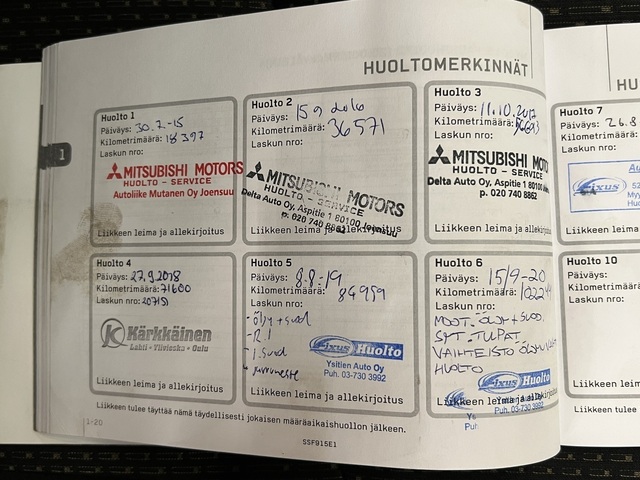 HUOLTOMERKINNÄT
Huolto 1
Päiväys: 30.7-15
Kilometrimäärä: 18397
Laskun nro:
MITSUBISHI MOTORS
HUOLTO - SERVICE
Autoliike Mutanen Oy Joensuu
Liikkeen leima ja allekirjoitus
Huolto 2
Päiväys: 15 9 2016
Kilometrimäärä: 36571
Laskun nro:
MITSUBISHI MOTORS
HUOLTO - SERVICE
Delta Auto Oy, Aspitie 1 80100 Joensuu
p. 020 740 8862
Liikkeen leima ja allekirjoitus
Huolto 3
Päiväys: 11.10.2017
Kilometrimäärä:
Laskun nro:
MITSUBISHI MOTO
HUOLTO - SERVICE
Delta Auto Oy, Aspitie 1 80100
p. 020 740 8862
Liikkeen leima ja allekirjoitus
Huolto 7
Päiväys: 26.8
Kilometrimäärä
Laskun nro:
Fixus
Liikkeen leima
Huolto 4
Päiväys: 27.9.2018
Kilometrimäärä: 71600
Laskun nro: 207151
Kärkkäinen
Lahti - Ylivieska - Oulu
Liikkeen leima ja allekirjoitus
Huolto 5
Päiväys: 8.8-19
Kilometrimäärä: 84959
Laskun nro:
- öljy + suod
Fixus Huolto
Ysitien Auto Oy
Puh. 03-730 3992
Liikkeen leima ja allekirjoitus
Huolto 6
Päiväys: 15/9-20
Kilometrimäärä:
Laskun nro:
MOOT. ÖLJY + SUOD.
SYT. TULPAT
VAIHTEISTO
HUOLTO
Fixus Huolto
Puh. 03-730 3992
Liikkeen leima ja allekirjoitus
Huolto 10
Päiväys:
Kilometrimäärä
Laskun nro:
Liikkeen leima
Liikkeen tulee täyttää nämä täydellisesti jokaisen määräaikaishuollon jälkeen.
Liikkeen tulee
1-20
SSF915E1
1